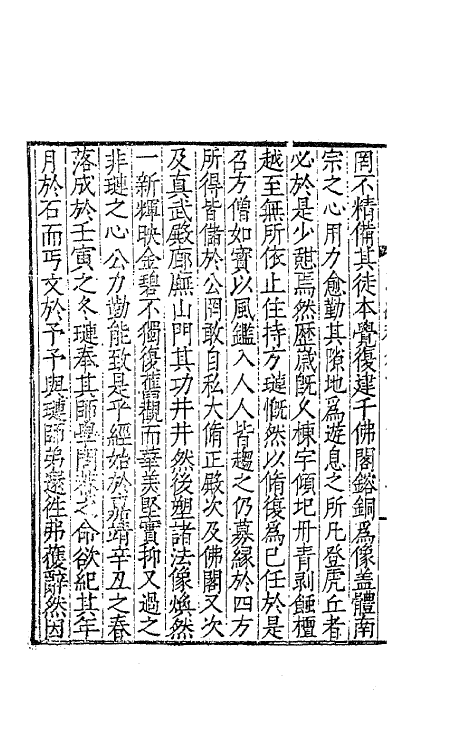 罔不精備其徒本覺復建千佛閣鎔銅爲像盖體南
宗之心用力愈勤其隙地爲遊息之所凡登虎丘者
必於是少憇焉然歷歲旣久棟宇傾圯丹青剥蝕檀
越至無所依止住持方璉慨然以脩復爲己任於是
召方僧如寳以風鑑入人人皆趨之仍募緣於四方
所得皆儲於公罔敢自私大脩正殿次及佛閣又次
及真武殿廊廡山門其功井井然後塑諸法像煥然
一新輝映金碧不獨復舊觀而華美堅實抑又過之
非璉之心公力勤能致是乎經始於嘉靖辛丑之春
落成於壬寅之冬璉奉其師學誾菴之命欲紀其年
月於石而丐文於予予與璉師弟還徃弗獲辭然因